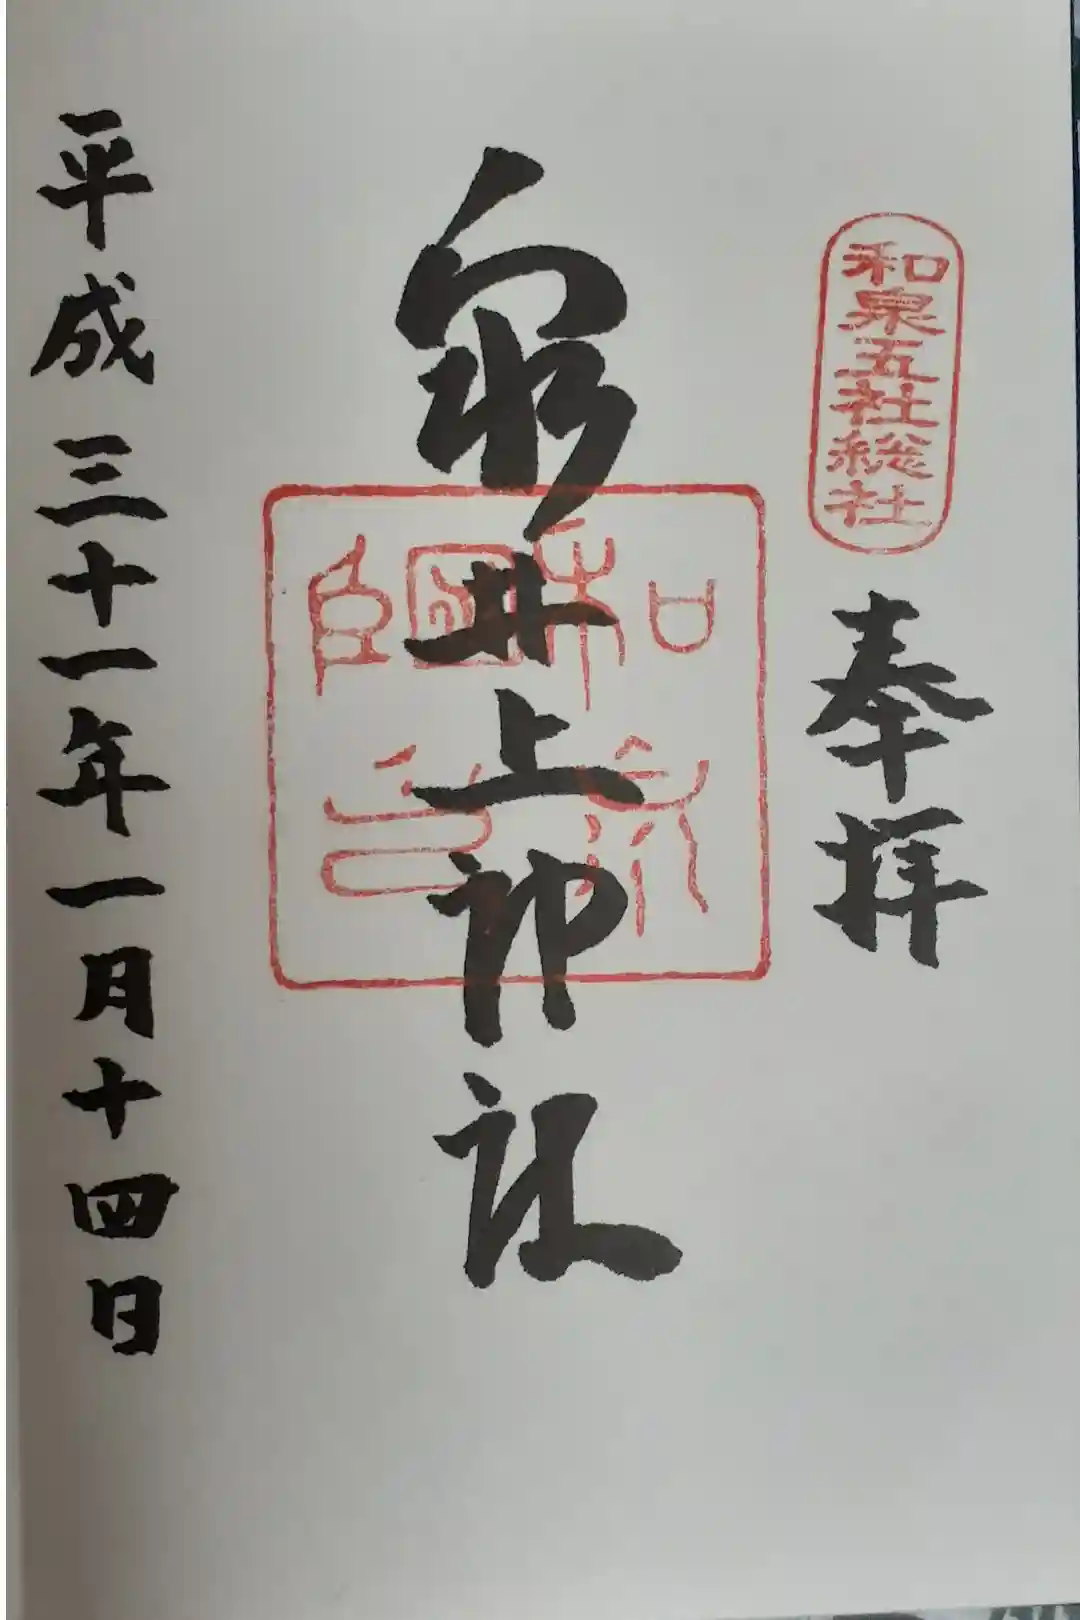 和泉五社総社
奉拝
泉井上神社
和泉
國師
平成三十一年一月十四日